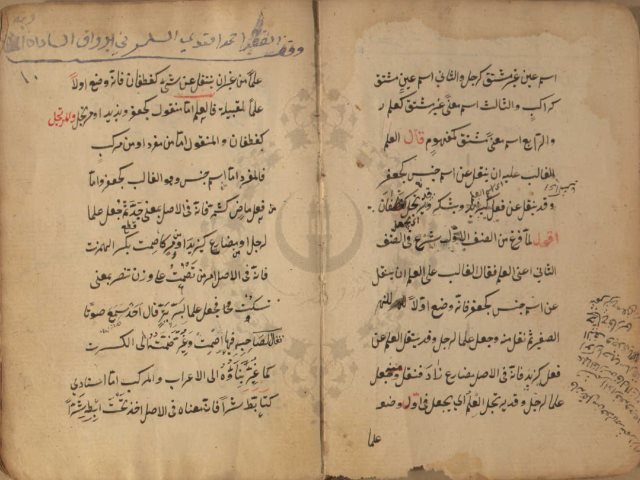 اسم عين غير مشتق كرجل والثاني اسم عين مشتق
كراكب والثالث اسم معنى غير مشتق كعلم
والرابع اسم معنى مشتق كمفهوم قال العلم
الغالب عليه ان ينقل عن اسم جنس كجعفر
وقد ينقل عن فعل كيزيد ويشكر وقد يرتجل كغطفان
اقول لما فرغ من الصنف الاول شرع في الصنف
الثاني اعني العلم فقال الغالب على العلم ان ينقل
عن اسم جنس كجعفر فانه وضع اولا للنهر
الصغير ثم نقل منه وجعل علما لرجل وقد ينقل العلم عن
فعل كيزيد فانه في الاصل مضارع زاد فنقل وجعل
علما لرجل وقد يرتجل العلم اي يجعل في اول وضعه
علما
وقف الفقير احمد افندي في رواق السادة
١٠
علما من غير ان ينقل عن شيء كغطفان فانه وضع اولا
علما لقبيلة فالعلم اما منقول كجعفر ويزيد او مرتجل
كغطفان والمنقول اما من مفرد او من مركب
فالمفرد اما اسم جنس وهو الغالب كجعفر واما
من فعل ماض كشمر فانه في الاصل بمعنى جد ثم جعل علما
لرجل او مضارع كيزيد او امر كاصمت بكسر الهمزة
فانه في الاصل امر من تصمت على وزن تنصر بمعنى
تسكت ثم جعل علما لبرية قال احد سمع صوتا
فقال لصاحبه فيها اصمت وغير ضمته الى الكسرة
كما غير بناؤه الى الاعراب والمركب اما اسنادي
كتابط شرا فانه معناه في الاصل اخذ تحت ابطه شرا